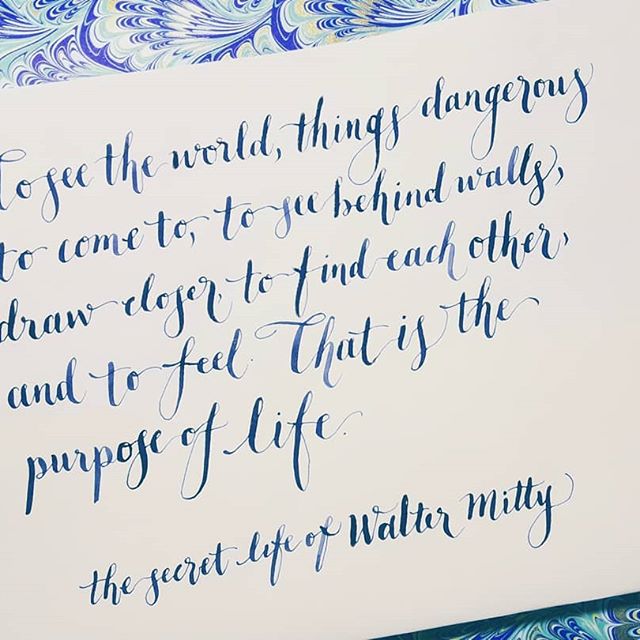 To see the world, things dangerous
to come to, to see behind walls,
draw closer, to find each other,
and to feel. That is the
purpose of life.
the secret life of Walter Mitty